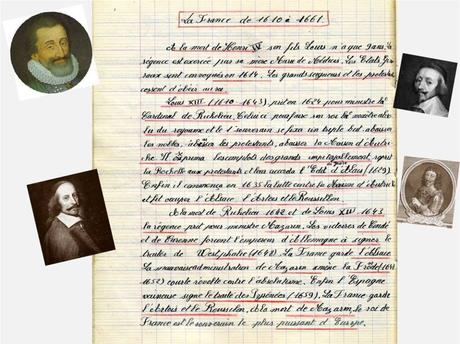 La France de 1610 à 1661.
A la mort de Henri IV son fils Louis n'a que 9 ans la
régence est exercée par sa mère Marie de Médicis. Les Etats Gé-
raux sont convoqués en 1614. Les grands seigneurs et les protestants
cessent d'obéir au roi
Louis XIII (1610-1643) prit en 1624 pour ministre le
Cardinal de Richelieu. Celui-ci pour faire son roi le maître abso-
lu du royaume et le souverain se fixa un triple but, abaisser
les nobles, abaisser les protestants, abaisser la Maison d'Autri-
che. Il réprima les complots des grands impitoyablement, reprit
la Rochelle aux protestants et leur accorda l'Edit d'Alais (1629)
Enfin il commença en 1635 la lutte contre la Maison d'Autriche
et fit occuper l'Alsace l'Artois et le Roussillon.
A la mort de Richelieu 1642 et de Louis XIII 1643
la régence prit pour ministre Mazarin. Les victoires de Condé
et de Turenne forcent l'empereur d'Allemagne à signer le
traités de Westphalie (1648) La France garde l'Alsace
La mauvaise administration de Mazarin amène la Fronde (1648
1652) courte révolte contre l'absolutisme. Enfin l'Espagne
vaincue signe le traité des Pyrénées (1659). La France garde
l'Artois et le Roussillon, à la mort de Mazarin, le roi de
France est le souverain le plus puissant d'Europe.